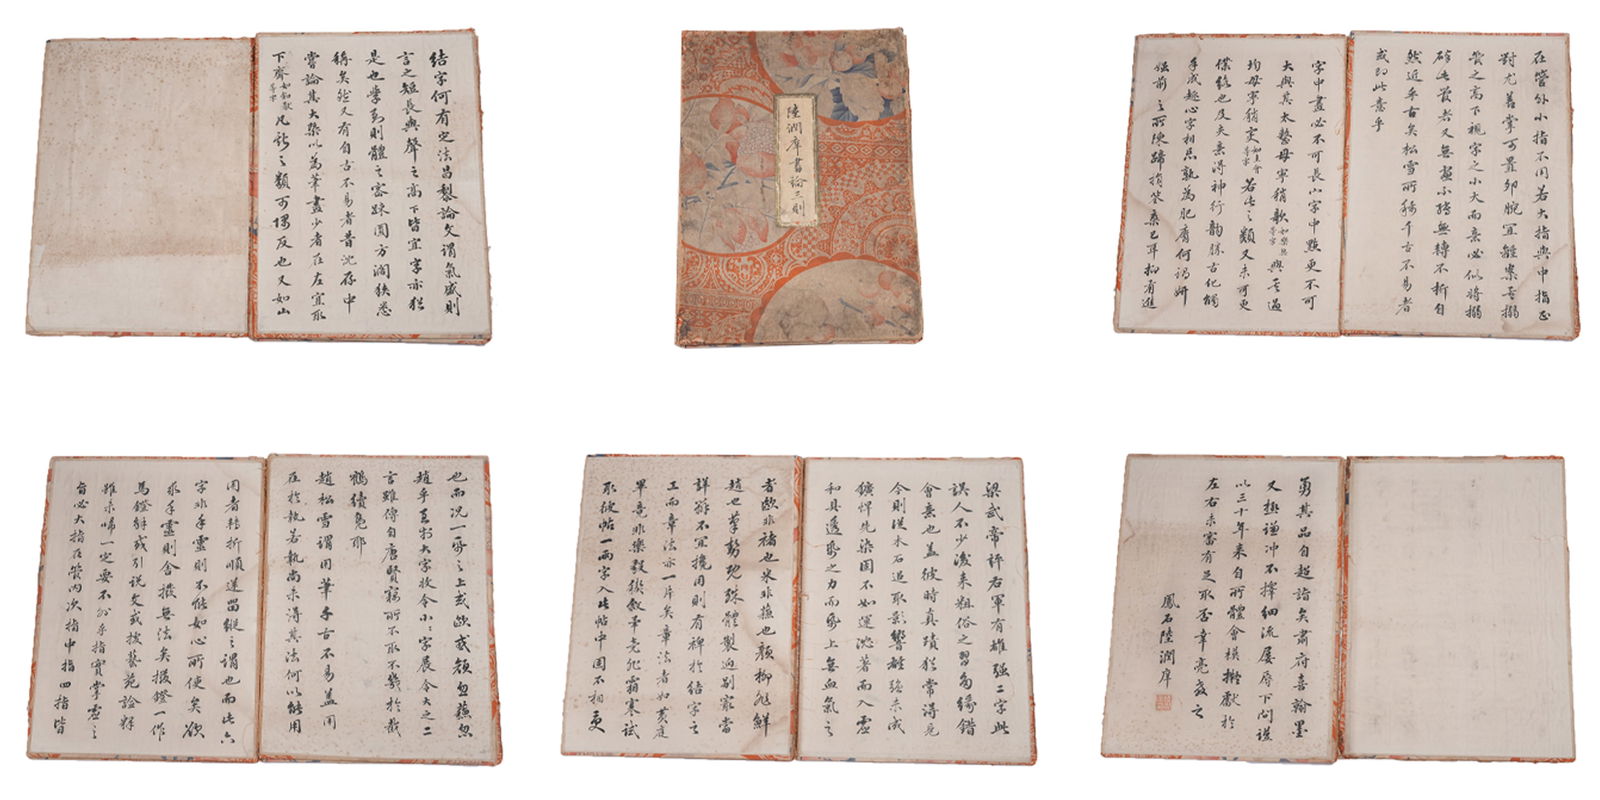 結字何有定法昌黎論文謂氣盛則
言之短長與聲之高下皆宜字亦猶
是也學到則體之密踈圓方濶狹悉
稱矣然又有自古不易者昔沈存中
嘗論其大槩以為筆畫少者在左宜取
下齊如釦等字凡斯之類可隅反也又如山
陸潤庠書論三則
在管外小指不用若大指與中指正
對尤善掌可置卵腕宜離案若搦
管之高下視字之小大而亦必似將搦
碎此管者又無垂不縮無轉不折自
然近乎古矣松雪所稱千古不易者
或即此意乎
字中畫必不可長小字中點更不可
大與其太整毋寧稍欹等字與其過
均毋寧稍变等字若此之類又未可更
僕終也及夫意得神行韻勝古化觸
手成趣心字相忘孰為肥膚何謂妍
媸前之所陳蹄捐筌棄已耳抑有進
也而況一紙之上或歐或顏忽蘇忽
趙乎至於大字收令小小字展令大之二
言雖傳自唐賢竊所不取不幾於截
鶴續鳧耶
趙松雪謂用筆千古不易蓋用
在於執若執尚未得其法何以能用
用者轉折順逆留縱之謂也而此六
字非手靈則不能如心所使矣欲
求手靈則舍撥無法矣撥鐙一作
馬鐙解或引說文或據藝苑詮釋
雖未歸一定要不外乎指實掌虛之
旨必大指在管內次指中指四指皆
梁武帝評右軍有雄强二字此
誤人不少後來粗俗之習每緣錯
會意也蓋彼時真蹟猶常得見
今則從木石追取影響雄強未成
獷悍先染固不如運沈著而入虛
和具透紙之力而紙上無血氣之
者歐非褚也米非蘇也顏柳尨鮮
趙也筆勢既殊體製迥別最當
詳辨不宜攙用則有裨於結字之
工而章法亦一片矣章法者如黃庭
畢竟非樂毅猶敘畢竟非霜寒試
取彼帖一兩字入此帖中固不相更
勇其品自超詣矣肅府喜翰墨
又撝謙冲不擇細流屢辱下問謹
以三十年來自所體會模擬獻於
左右未審有足取否幸亮教之
鳳石陸潤庠